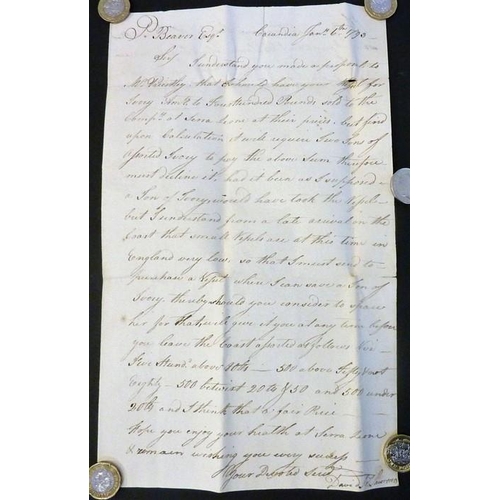 P. Beaver Esqr. Cacundia Jany. 6th 1793
Sir
I understand you made a proposal to
Mr. that he should have your for
Ivory to the amount Hundred Pounds sold to the
Compy. at Sierra Leone at their prices. but find
upon Calculation it will require Two Tons of
assorted Ivory to pay the above Sum therefore
must decline it. had it been as I supposed a
Ton of Ivory would have took the Vessel
but I understand from a late arrival on the
Coast that small Vessels are at this time in
England very low, so that I must send to
purchase a Vessel where I can save a Ton of
Ivory thereby should you consider to spare
her for that will give it you at any time before
you leave the Coast assorted as follows Viz
Five Hund. above 80 lb — 500 above Fifty & not
Eighty — 500 betwixt 20 lb & 50 and 500 under
20 lb and I think that a fair Price —
Hope you enjoy your health at Sierra Leone
& remain wishing you every success
Your Devoted Servt.
David